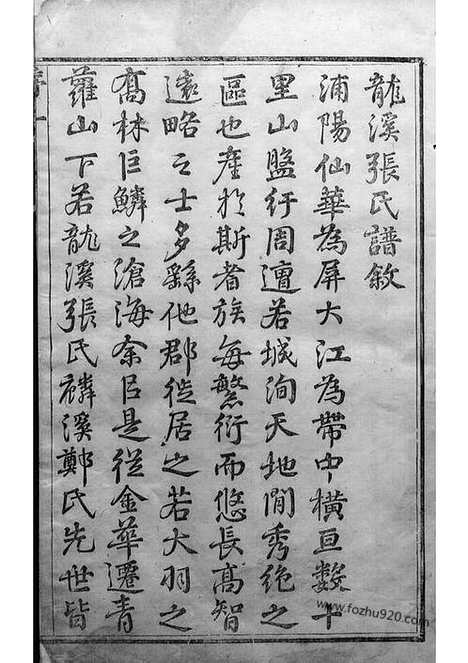 龍溪張氏譜敘
浦陽仙華為屏大江為帶中橫亘數十
里山盤紆周遭若城洵天地間秀絕之
區也產於斯者族每繁衍而悠長高智
遠略之士多繇他郡徙居之若大羽之
喬林巨鱗之滄海余臣是從金華遷青
蘿山下若龍溪張氏麟溪鄭氏先世皆
www.fozhu920.com